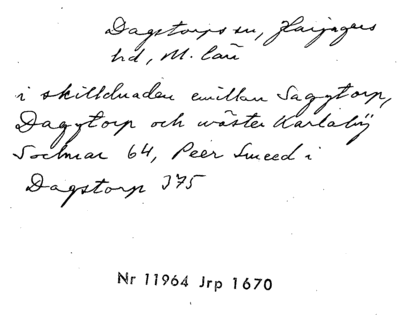 Dagstorps sn, Harjagers
hd, M. län
i skilldnaden emillan Saxtorp,
Dagstorp och wäster Karlaby
Sochnar 64, Peer Smeed i
Dagstorp 375
Nr 11964 Jrp 1670